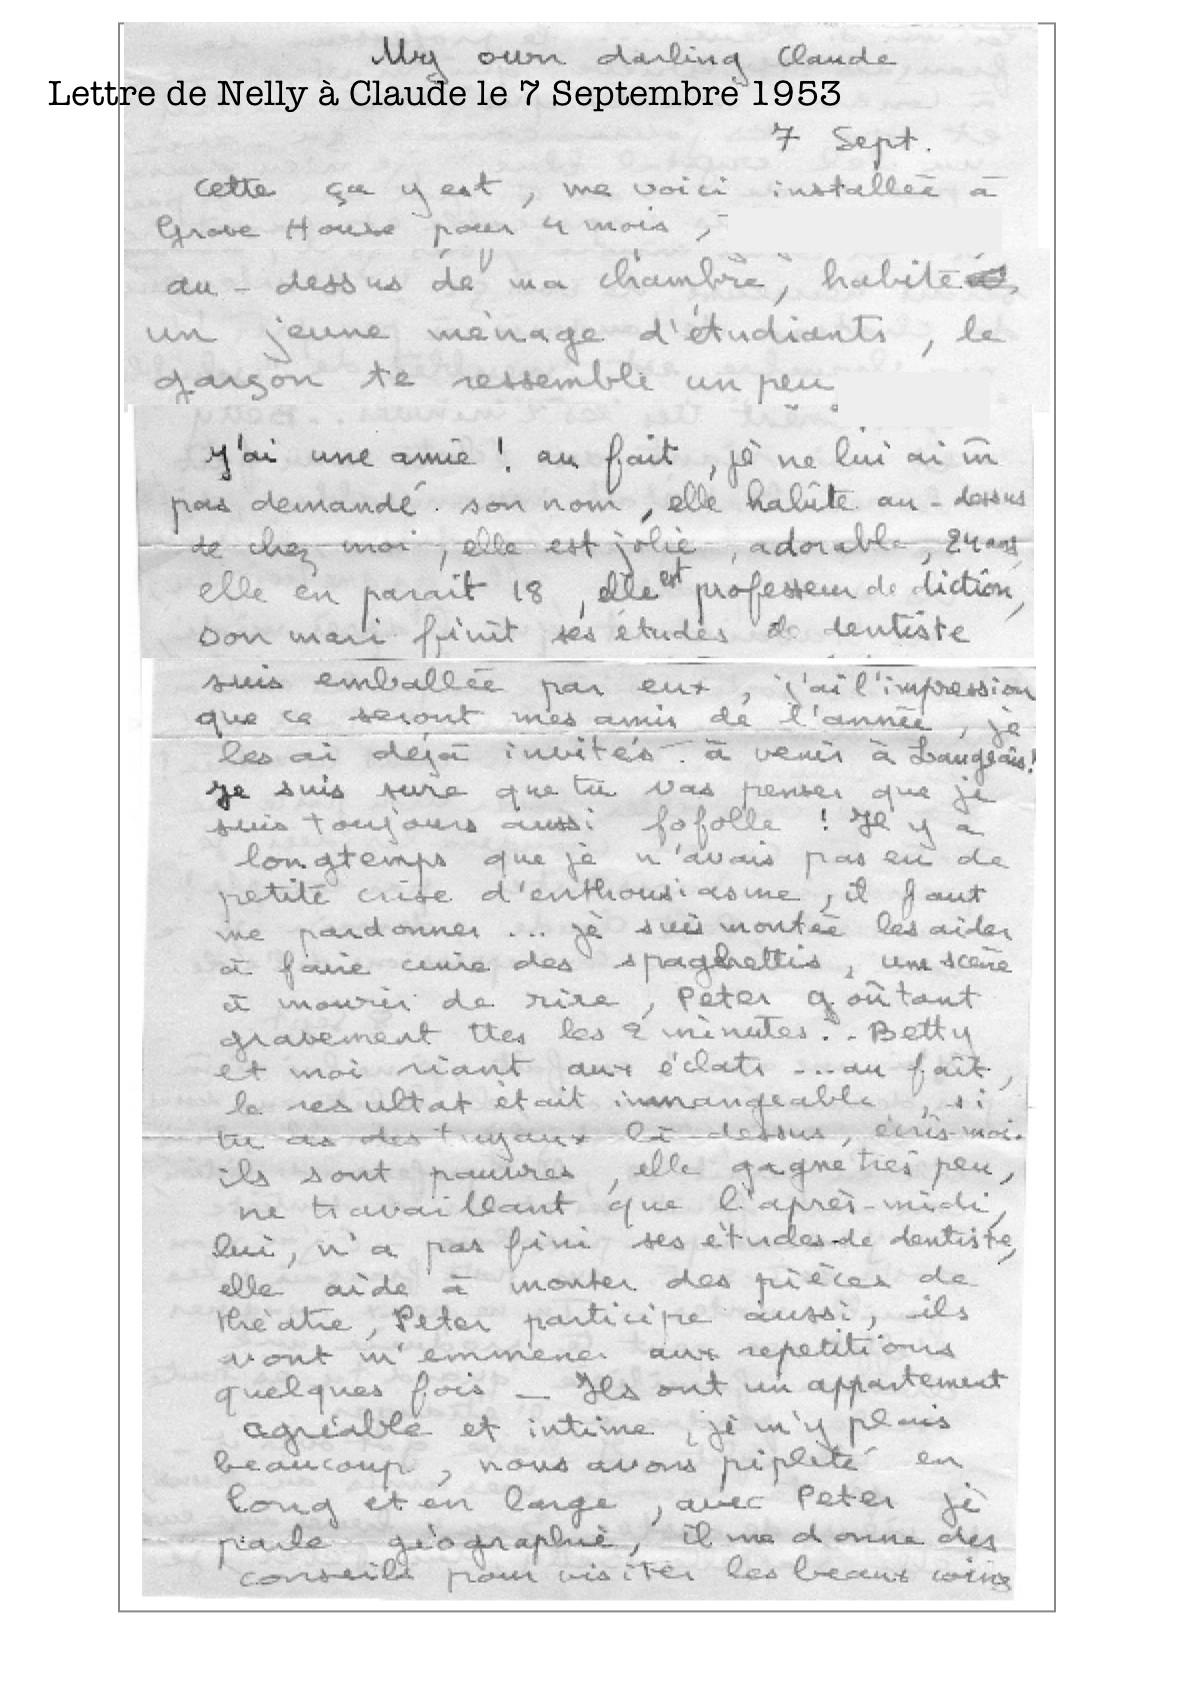 My own darling Claude
Lettre de Nelly à Claude le 7 Septembre 1953
7 Sept.
cette ça y est, me voici installée à
Grove House pour 4 mois,
au-dessus de ma chambre, habite
un jeune ménage d'étudiants, le
garçon te ressemble un peu
J'ai une amie ! au fait, je ne lui ai m̄
pas demandé son nom, elle habite au-dessus
de chez moi, elle est jolie, adorable, 24 ans,
elle en parait 18, elle est professeur de diction,
son mari finit ses études de dentiste
suis emballée par eux, j'ai l'impression
que ce seront mes amis de l'année, je
les ai déjà invités à venir à Langeais !
Je suis sure que tu vas penser que je
suis toujours aussi fofolle ! Il y a
longtemps que je n'avais pas eu de
petite crise d'enthousiasme, il faut
me pardonner ... je suis montée les aider
à faire cuire des spaghettis, une scène
à mourir de rire, Peter goûtant
gravement ttes les 2 minutes... Betty
et moi riant aux éclats ... au fait,
le resultat était immangeable, si
tu as des tuyaux là dessus, écris-moi.
ils sont pauvres, elle gagne très peu,
ne travaillant que l'après-midi,
lui, n'a pas fini ses études de dentiste,
elle aide à monter des pièces de
théatre, Peter participe aussi, ils
vont m'emmener aux repetitions
quelques fois - Ils ont un appartement
agréable et intime, je m'y plais
beaucoup, nous avons pipleté en
long et en large, avec Peter je
parle géographie, il me donne des
conseils pour visiter les beaux coins